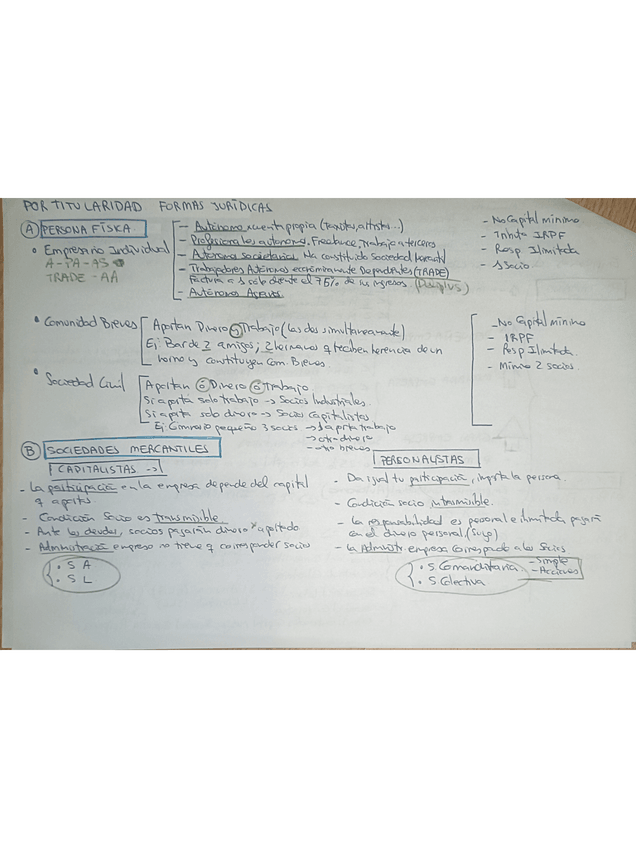 POR TITULARIDAD FORMAS JURÍDICAS
A PERSONA FÍSICA
• Empresario Individual
A - PA - AS
TRADE - AA
- Autónomo x cuenta propia (taxistas, artistas...)
- Profesionales autónomo. Freelance, trabajo a terceros
- Autónomo societario. Ha constituido Sociedad Mercantil
- Trabajadores Autónomos económicamente Dependientes (TRADE)
Factura a 1 solo cliente el 75% de sus ingresos
- Autónomos Agrarios
- No Capital mínimo
- Tributa IRPF
- Resp Ilimitada
- 1 Socio
• Comunidad Bienes
Aportan Dinero y Trabajo (las dos simultáneamente)
Ej: Bar de 2 amigos; 2 hermanos q reciben herencia de un
horno y constituyen Com. Bienes.
- No Capital mínimo
- IRPF
- Resp Ilimitada.
- Mínimo 2 socios.
• Sociedad Civil
Aportan ó Dinero ó Trabajo
Si aporta solo trabajo → Socios Industriales.
Si aporta solo dinero → Socios Capitalistas
Ej: Comercio pequeño 3 socios → 1 aporta trabajo
→ otro dinero
→ otro bienes
B SOCIEDADES MERCANTILES
CAPITALISTAS →
- La participación en la empresa depende del capital
q aportes
- Condición Socio es transmisible
- Ante las deudas, socios pagarán dinero aportado
- Administración empresa no tiene q corresponder socios
• S A
• S L
PERSONALISTAS
- Da igual tu participación, importa la persona.
- Condición socio intrasmisible.
- La responsabilidad es personal e ilimitada, pagarán
en el dinero personal (suyo)
- La Administr. empresa corresponde a los Socios
• S. Comanditaria
- Simple
- Acciones
• S. Colectiva